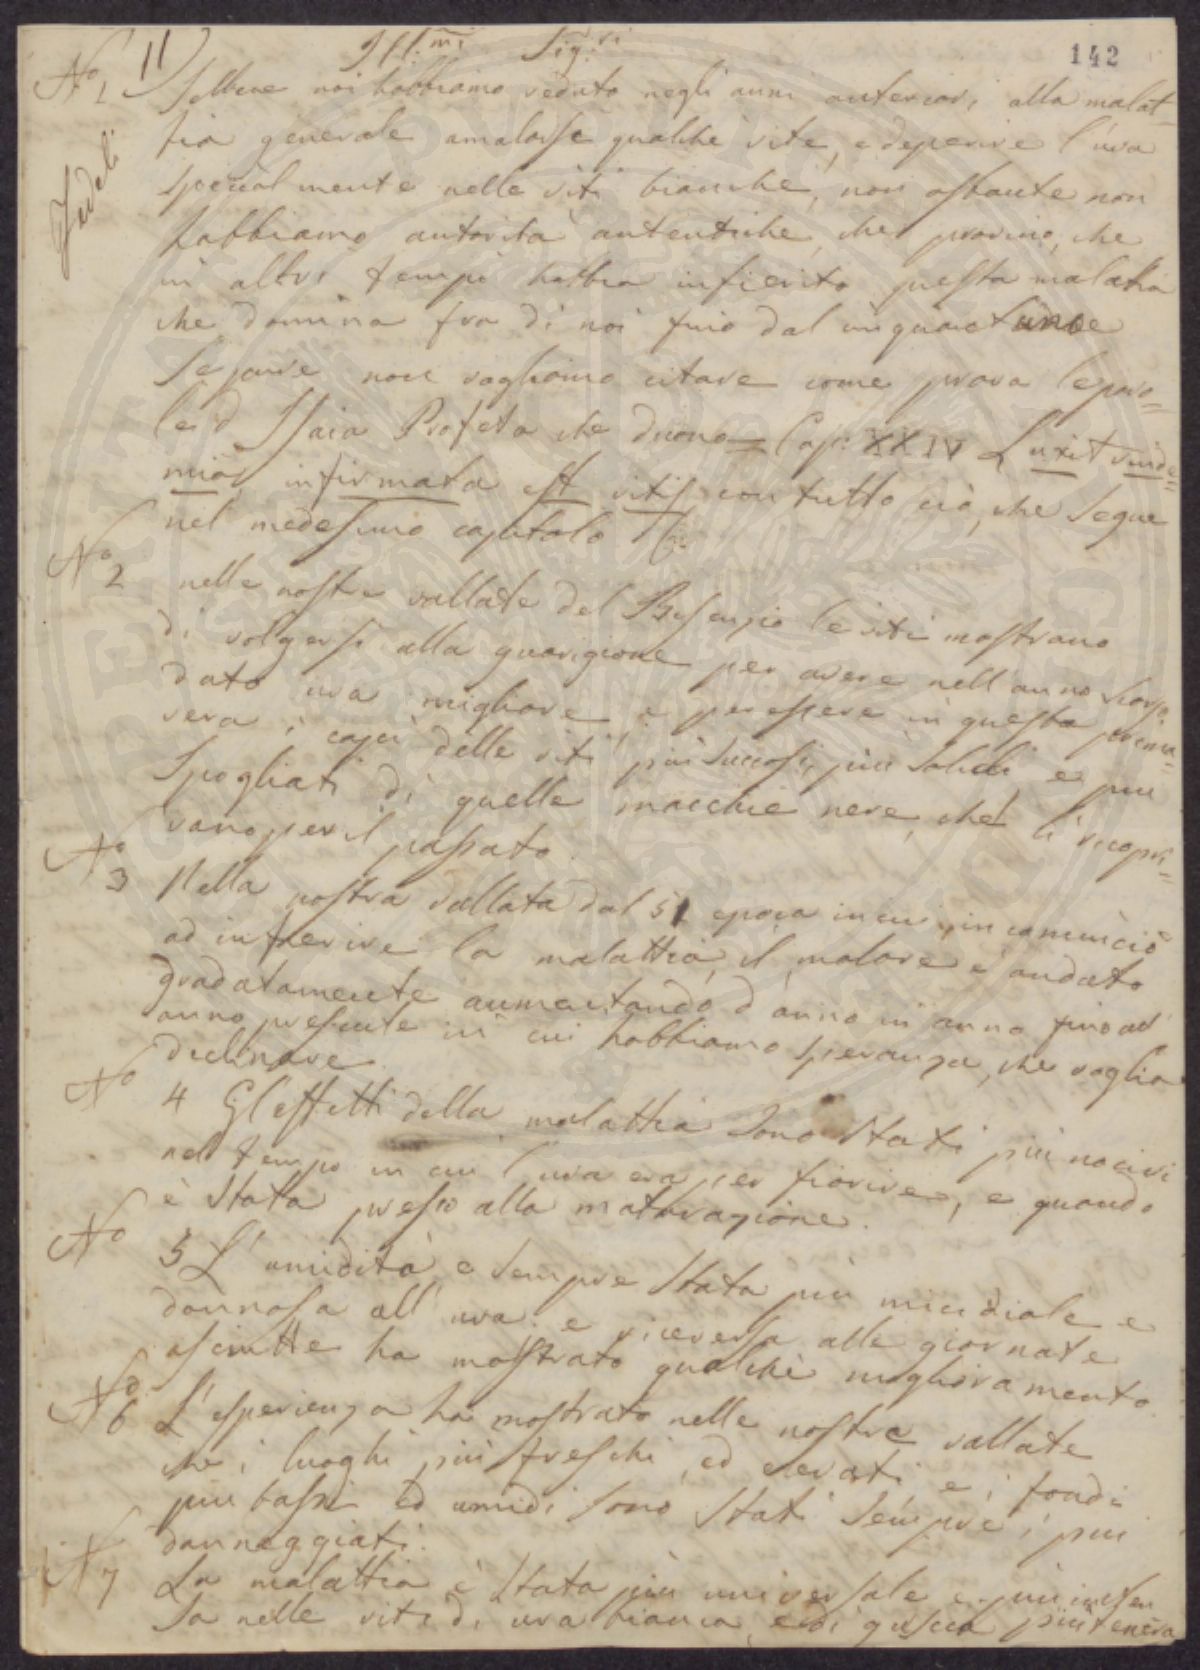 11) Ill.mi Sig.ri
142
N° 1 Sebbene noi habbiamo veduto negli anni anteriori alla malat-
tia generale amalarsi qualche vite, e deperire l'uva
specialmente nelle viti bianche, non ostante non
habbiamo autorità autentiche, che provino, che
in altri tempi habbia infierito questa malatia
che domina fra di noi fino dal cinquantuno
Se pure non vogliamo citare come prova le paro=
le d Isaia Profeta che dicono = Cap: XXIV Luxit vinde=
mia, infirmata est vitis con tutto ciò, che segue
nel medesimo capitolo
N° 2 nelle nostre vallate del Bisenzio le viti mostrano
di volgersi alla guarigione per avere nell'anno scorso
dato uva migliore, e per essere in questa prima=
vera i capi delle viti più succosi, più solidi, e più
spogliati di quelle macchie nere, che li ricopri=
vano per il passato.
N° 3 Nella nostra vallata dal 51 epoca in cui incominciò
ad infierire la malattia, il malore è andato
gradatamente aumentando d'anno in anno fino ad
anno presente in cui habbiamo speranza, che voglia
declinare.
N° 4 Gl effetti della malattia sono stati più nocivi
nel tempo in cui l'uva era per fiorire, e quando
è stata presso alla maturazione.
N° 5 L'umidità è sempre stata più micidiale e
dannosa all'uva: e viceversa alle giornate
asciutte ha mostrato qualche miglioramento.
N° 6 L'esperienza ha mostrato nelle nostre vallate
che i luoghi più freschi, ed elevati e i fondi
più bassi ed umidi sono stati sempre i più
danneggiati.
N° 7 La malattia è stata più universale e più inten
sa nelle viti di uva bianca, e di guscio più tenera